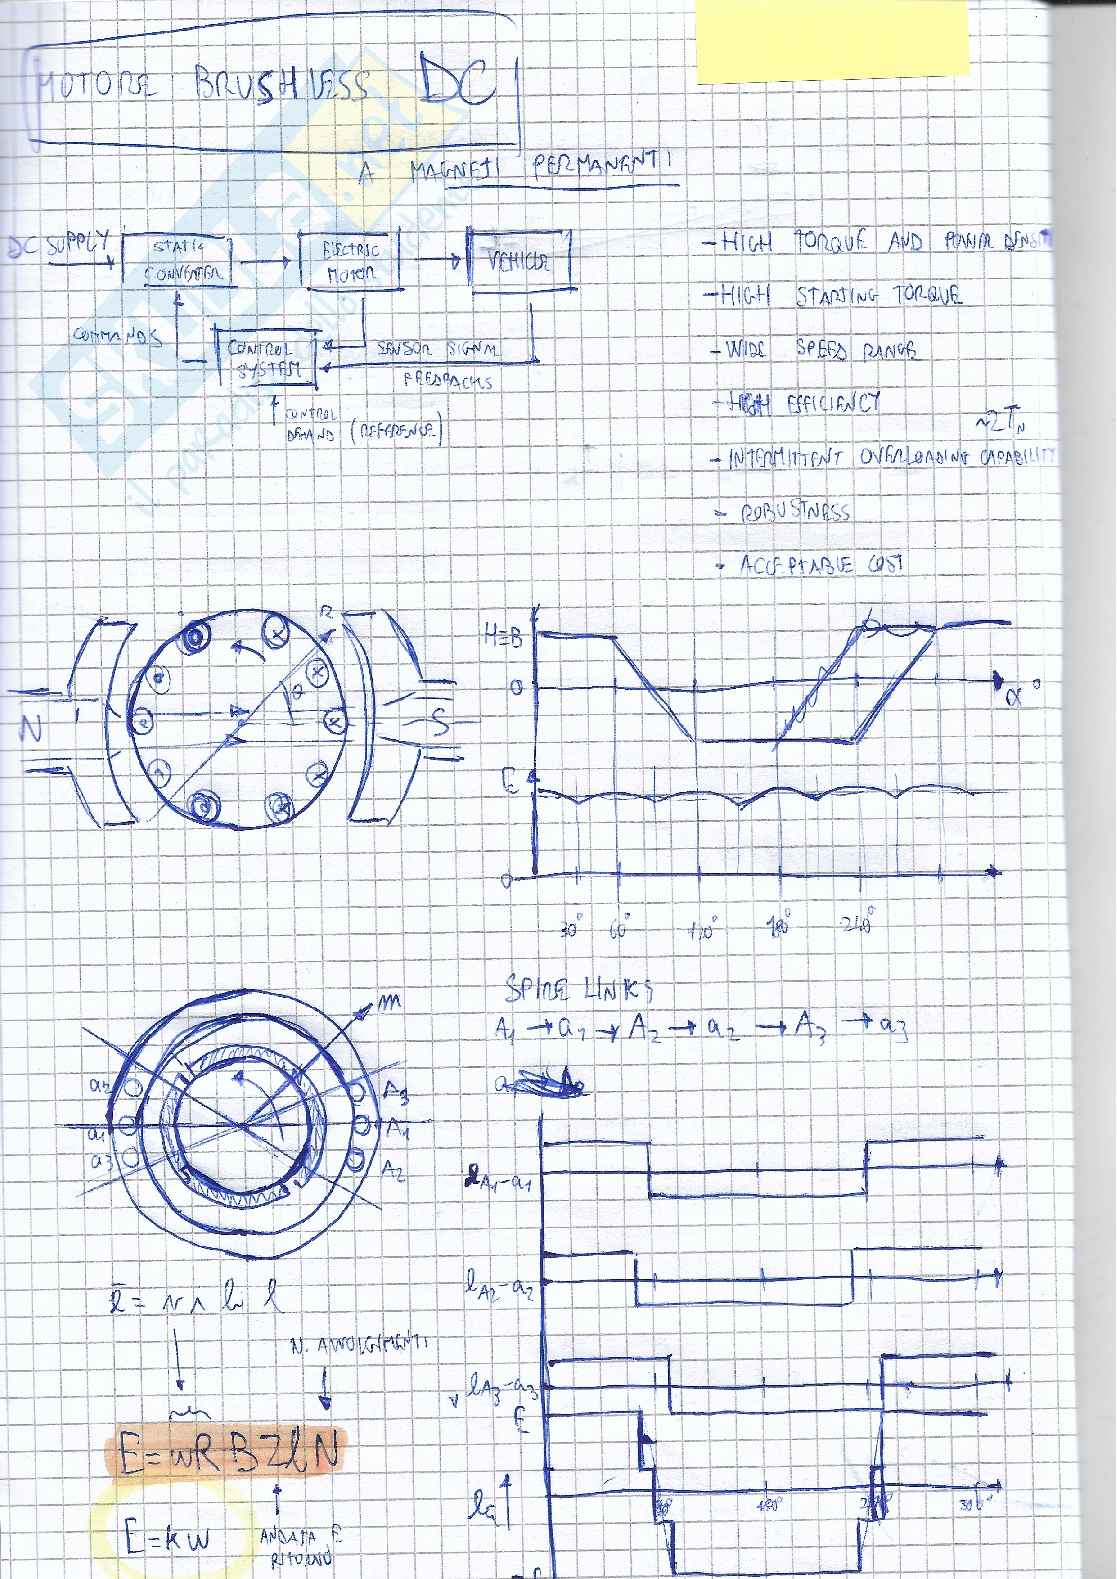 MOTORE BRUSHLESS DC
A MAGNETI PERMANENTI
DC SUPPLY
STATIC
CONVERTER
ELECTRIC
MOTOR
VEHICLE
COMMANDS
CONTROL
SYSTEM
SENSOR SIGNAL
FEEDBACKS
CONTROL
DEMAND (REFERENCE)
- HIGH TORQUE AND POWER DENSITY
- HIGH STARTING TORQUE
- WIDE SPEED RANGE
- HIGH EFFICIENCY
~2TN
- INTERMITTENT OVERLOADING CAPABILITY
- ROBUSTNESS
- ACCEPTABLE COST
N
S
R
θ
H≡B
0
α°
E
0
30° 60° 120° 180° 240°
SPIRE LINKS
A1 → a1 → A2 → a2 → A3 → a3
m
a2
a1
a3
A3
A1
A2
eA1-a1
eA2-a2
eA3-a3
E
180°
300°
N. AVVOLGIMENTI
E = wRB2lN
E = kw
ANDATA E
RITORNO